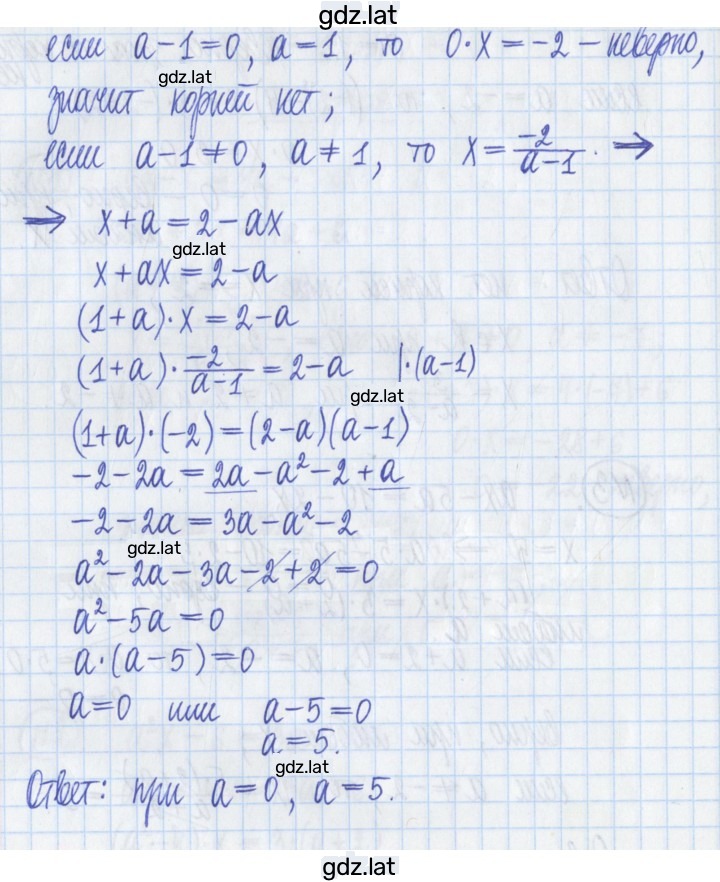 gdz.lat
если a-1=0, a=1, то 0·x=-2 - неверно,
gdz.lat
значит корней нет;
если a-1≠0, a≠1, то x=\frac{-2}{a-1}. ⇒
⇒ x+a=2-ax
gdz.lat
x+ax=2-a
(1+a)·x=2-a
(1+a)·\frac{-2}{a-1}=2-a |·(a-1)
gdz.lat
(1+a)·(-2)=(2-a)(a-1)
-2-2a=2a-a²-2+a
-2-2a=3a-a²-2
gdz.lat
a²-2a-3a-2+2=0
a²-5a=0
a·(a-5)=0
a=0 или a-5=0
a=5.
gdz.lat
Ответ: при a=0, a=5.
gdz.lat